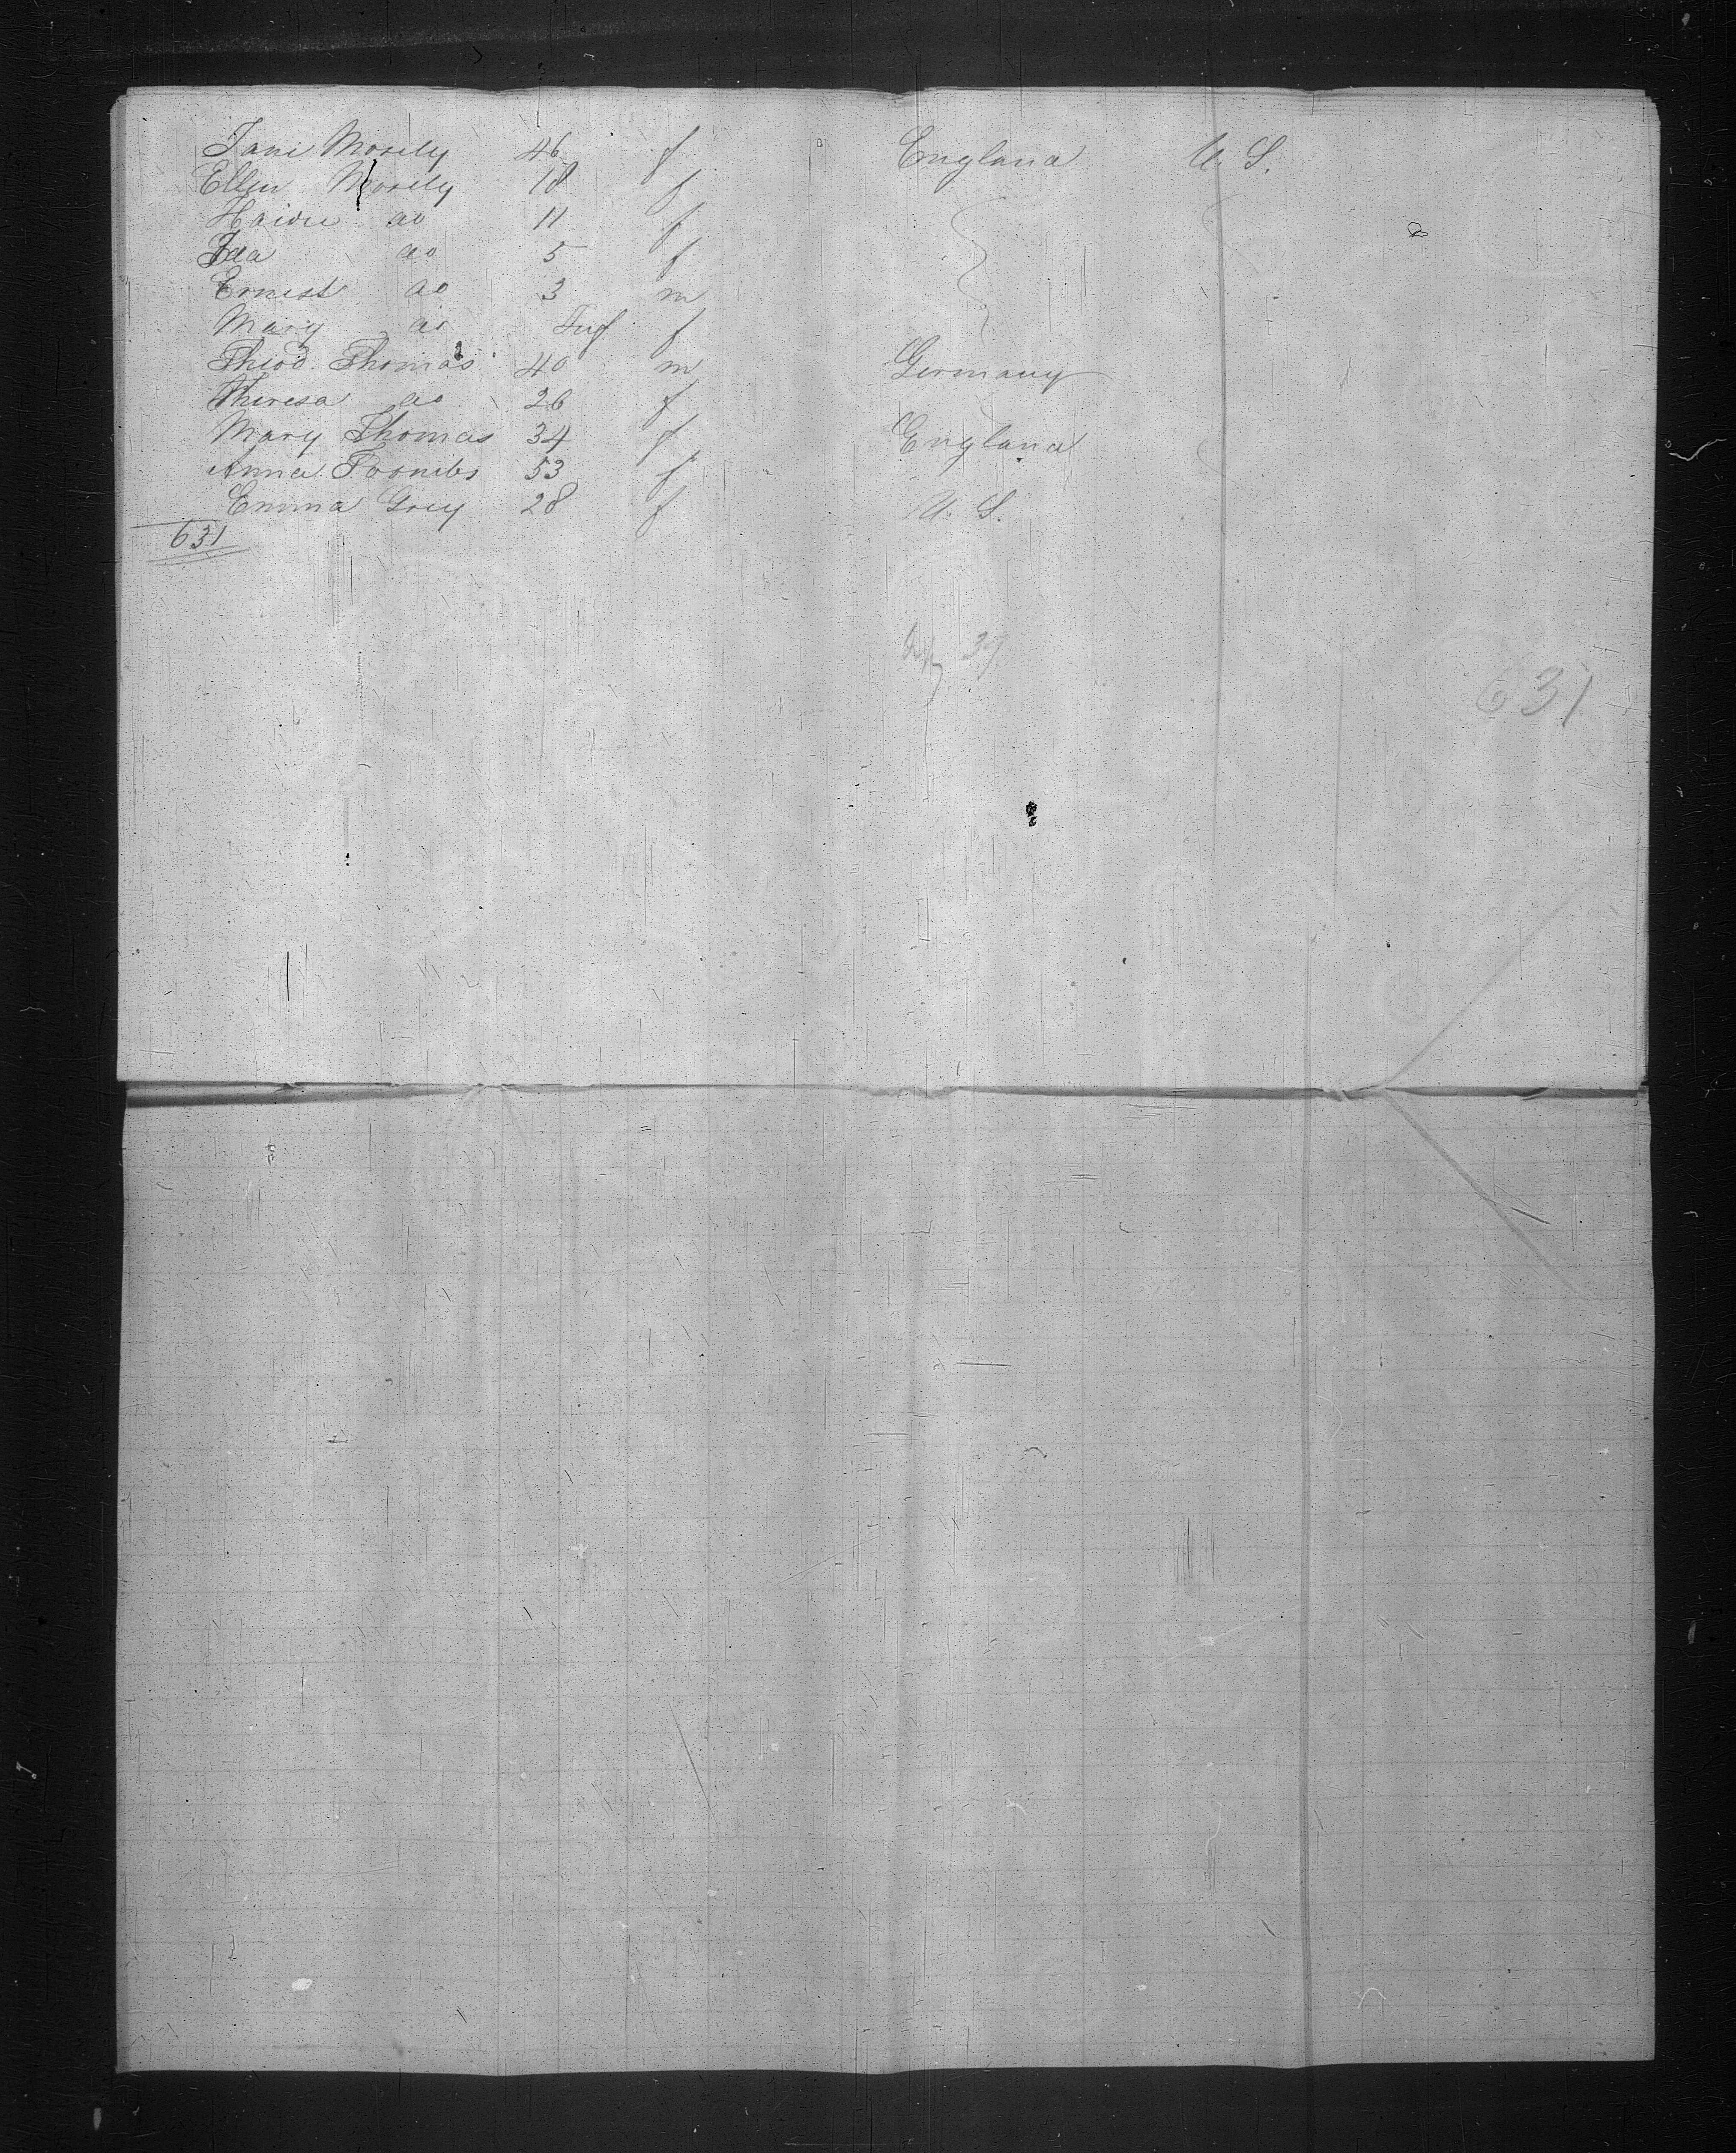 Jane Mosely 46 f England U. S.
Ellen Mosely 18 f
Haidee do 11 f
Ida do 5 f
Ernest do 3 m
Mary do Inf f
Theod. Thomas 40 m Germany
Theresa do 26 f
Mary Thomas 34 f England
Anna Toombs 53 f
Emma Grey 28 f U. S.
631
39
631